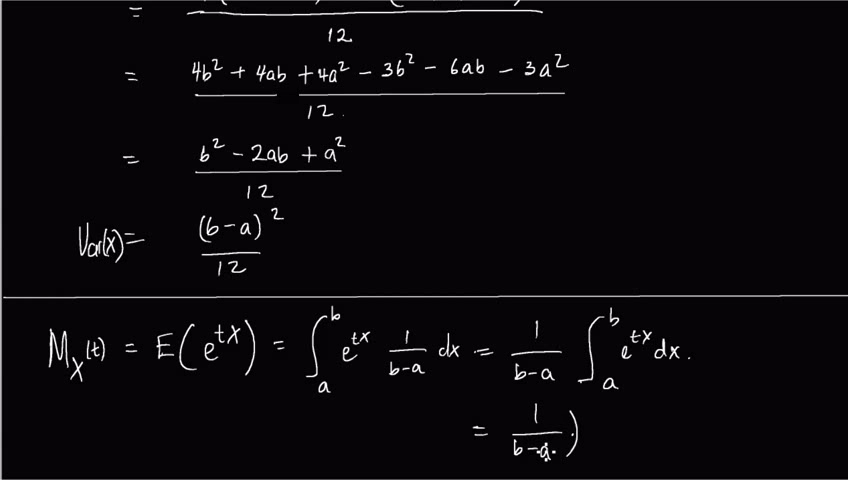 = 12
= 4b² + 4ab + 4a² - 3b² - 6ab - 3a² / 12
= b² - 2ab + a² / 12
Var(x) = (b-a)² / 12
M_X(t) = E(e^{tX}) = ∫_a^b e^{tx} 1/(b-a) dx = 1/(b-a) ∫_a^b e^{tx} dx.
= 1/(b-a) )